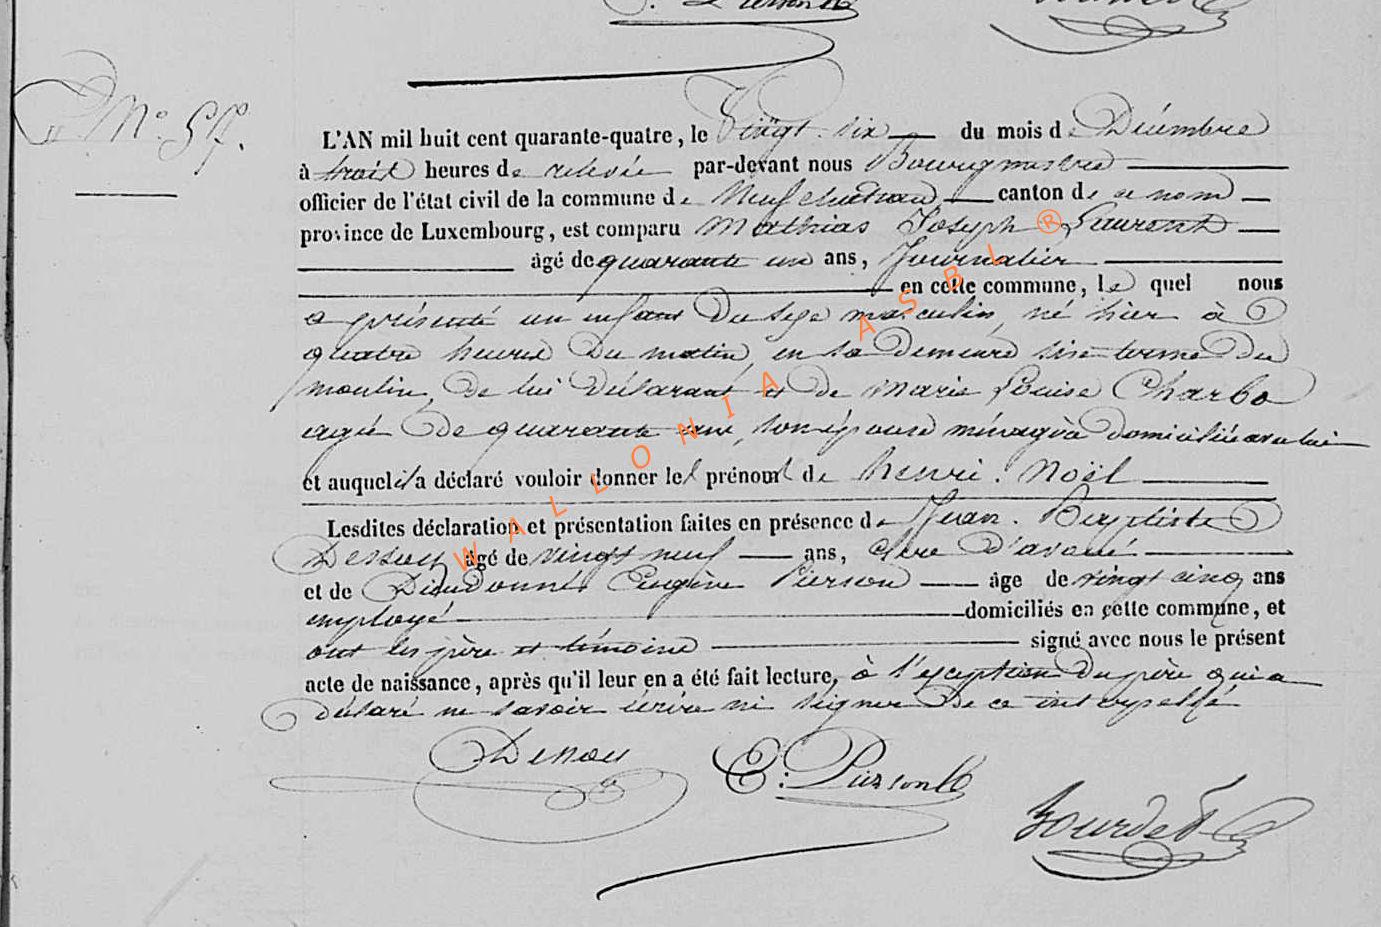 E. Pierson
N° 57.
L'AN mil huit cent quarante-quatre, le Vingt-six du mois de Décembre
à trois heures de relevée par-devant nous Bourgmestre
officier de l'état civil de la commune de Neufchateau canton de ce nom
province de Luxembourg, est comparu Mathias Joseph Laurent
âgé de quarante un ans, Journalier
en cette commune, le quel nous
a présenté un enfant du sexe masculin, né hier à
quatre heures du matin, en sa demeure, sise terme du
moulin, de lui déclarant et de Marie Louise Charlo
agée de quarante ans, son épouse ménagère domiciliée avec lui
et auquel il a déclaré vouloir donner les prénoms de henri. Noël
Lesdites déclaration et présentation faites en présence de Jean. Baptiste
Dessoy âgé de vingt neuf ans, clerc d'avoué
et de Dieudonné Eugène Pierson âgé de vingt cinq ans
employé domiciliés en cette commune, et
ont les père et témoins signé avec nous le présent
acte de naissance, après qu'il leur en a été fait lecture, à l'exception du père qui a
déclaré ne savoir écrire ni signer de ce interpellé
Dessoy E. Pierson
Bourdet
WALLONIA ASBL ®